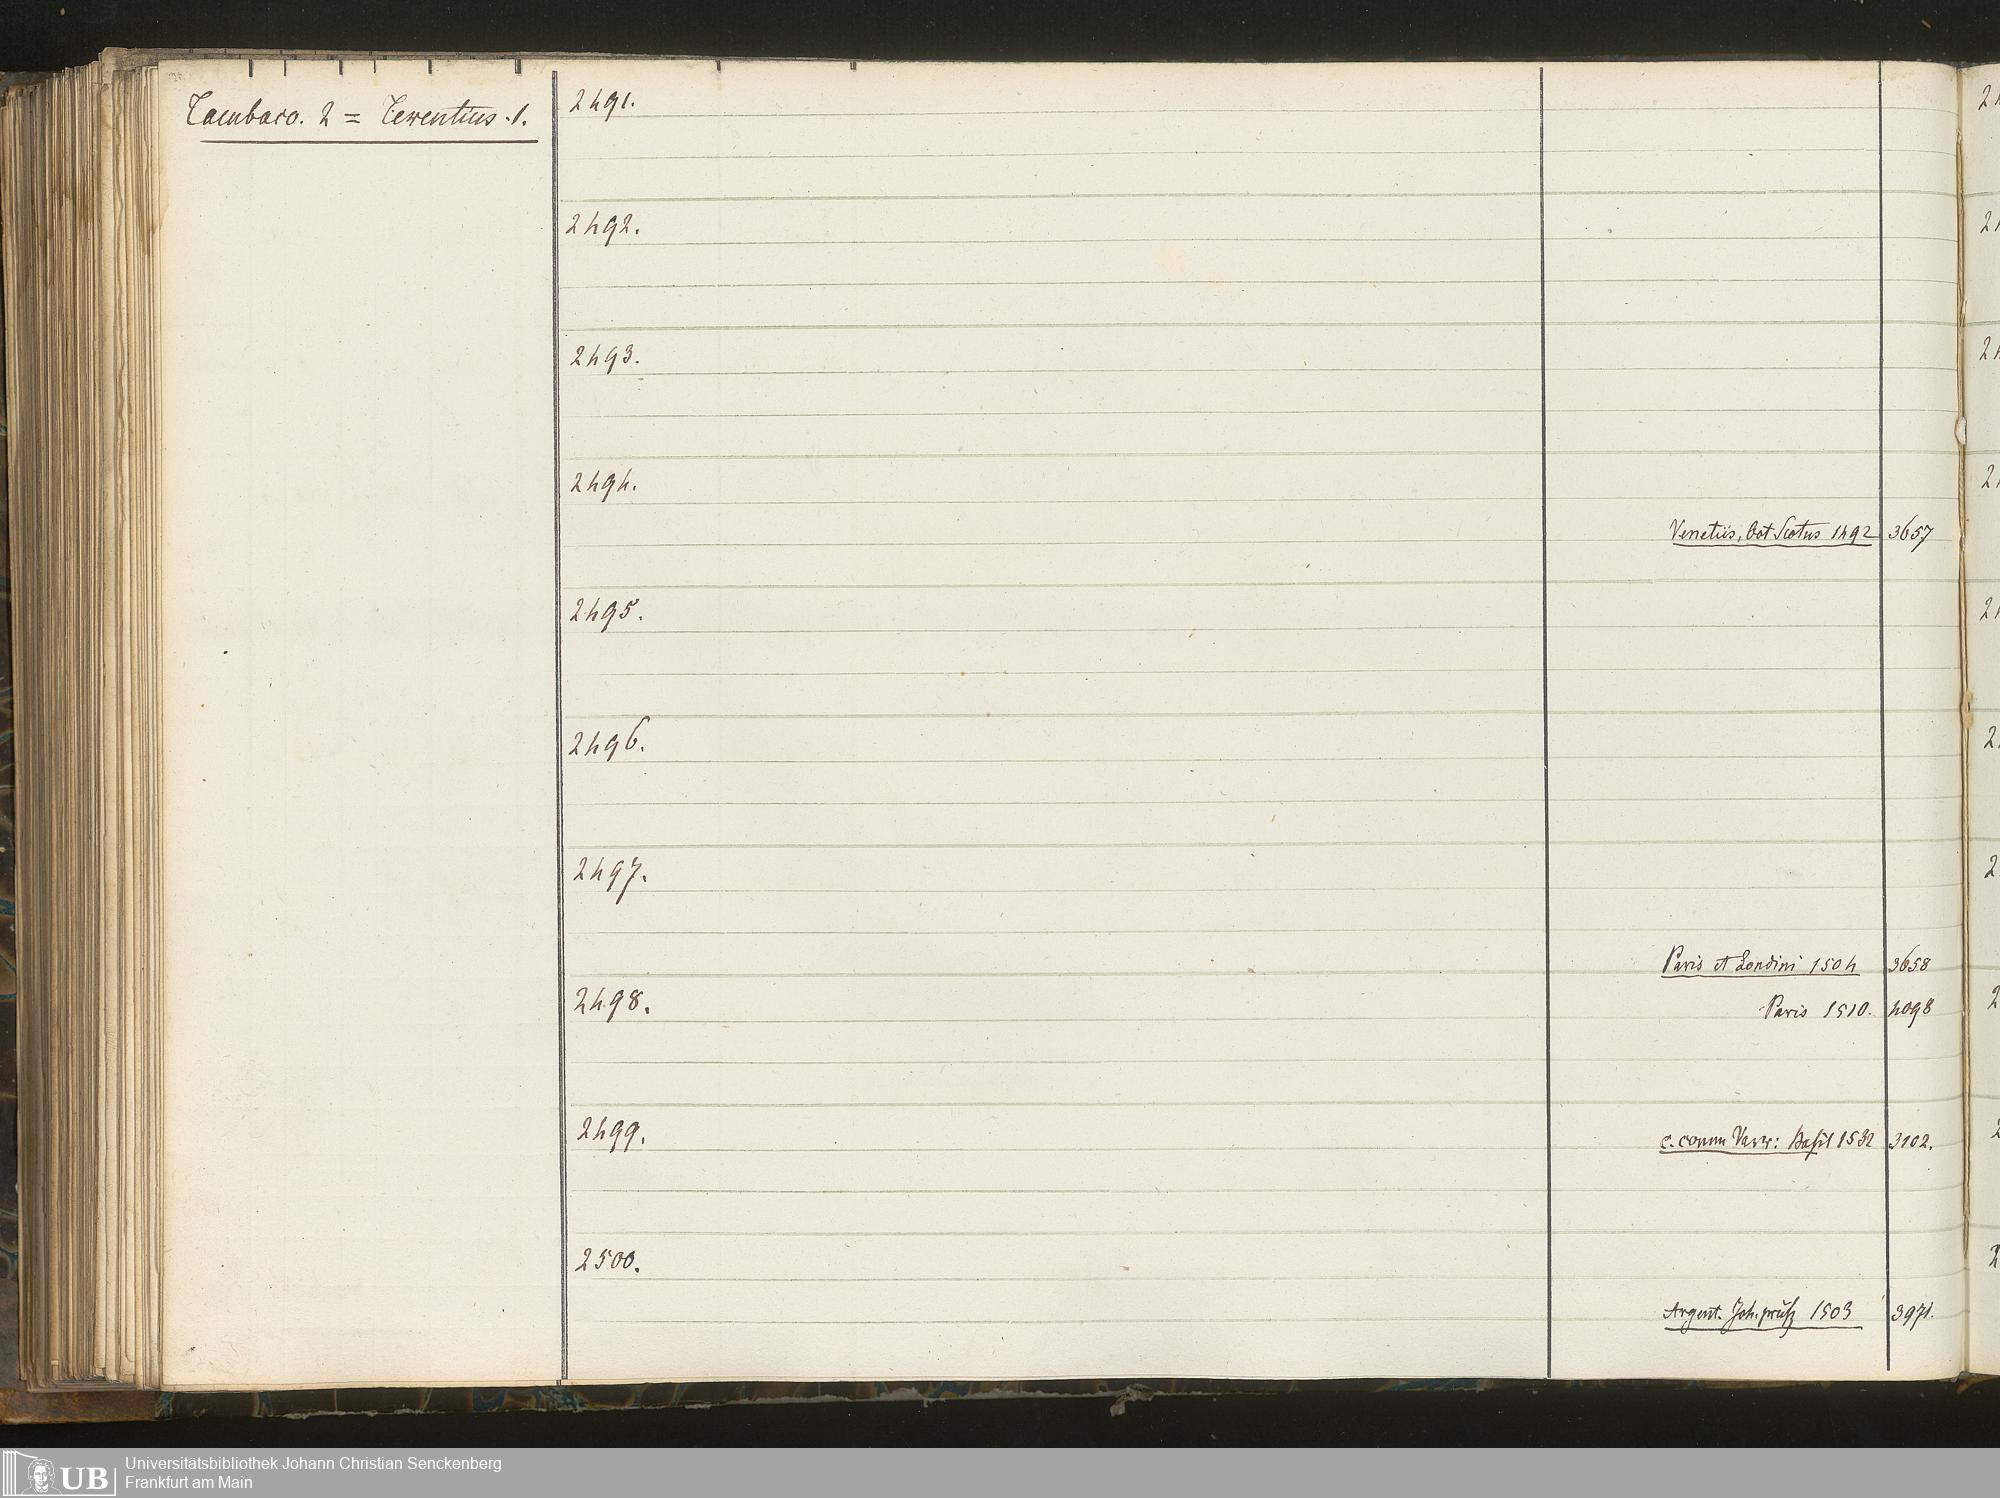 Tambaco. 2 = Terentius. 1.
2491.
2492.
2493.
2494.
Venetiis, Oct Scotus 1492 3657
2495.
2496.
2497.
Paris et Londini 1504 3658
2498.
Paris 1510. 4098
2499.
c. comm Varr: Basil 1532 3102.
2500.
Argent. Joh. prüß 1503 3971.
Universitätsbibliothek Johann Christian Senckenberg
Frankfurt am Main
UB